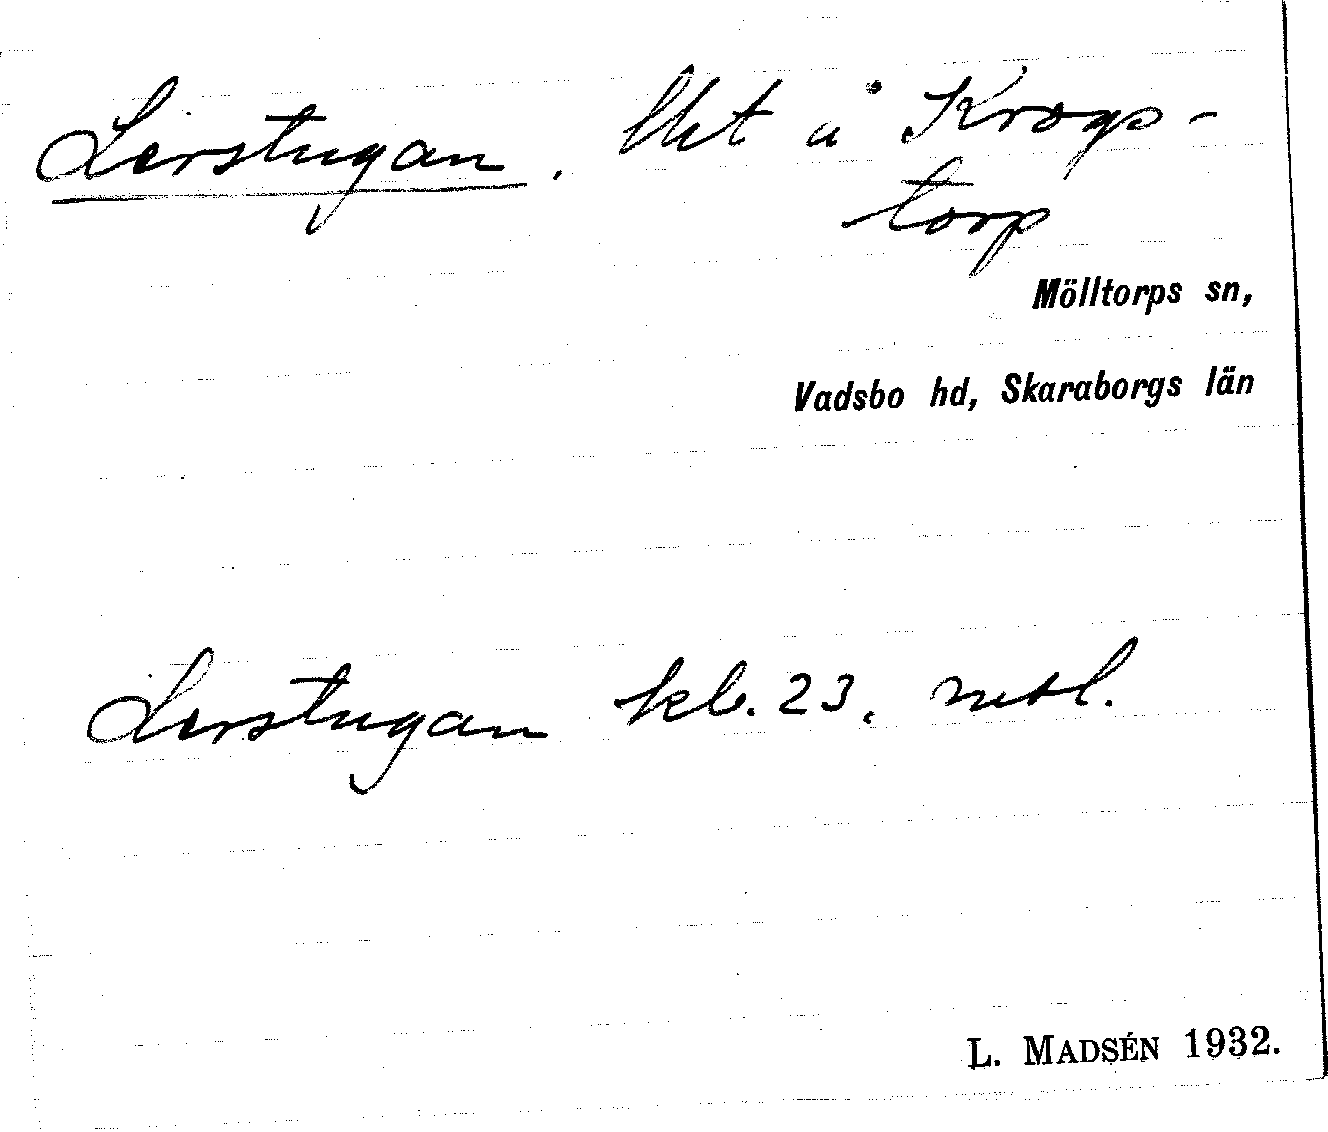 Lerstugan, lht å Krogs-
torp
Mölltorps sn,
Vadsbo hd, Skaraborgs län
Lerstugan kb. 23, mtl.
L. MADSÉN 1932.